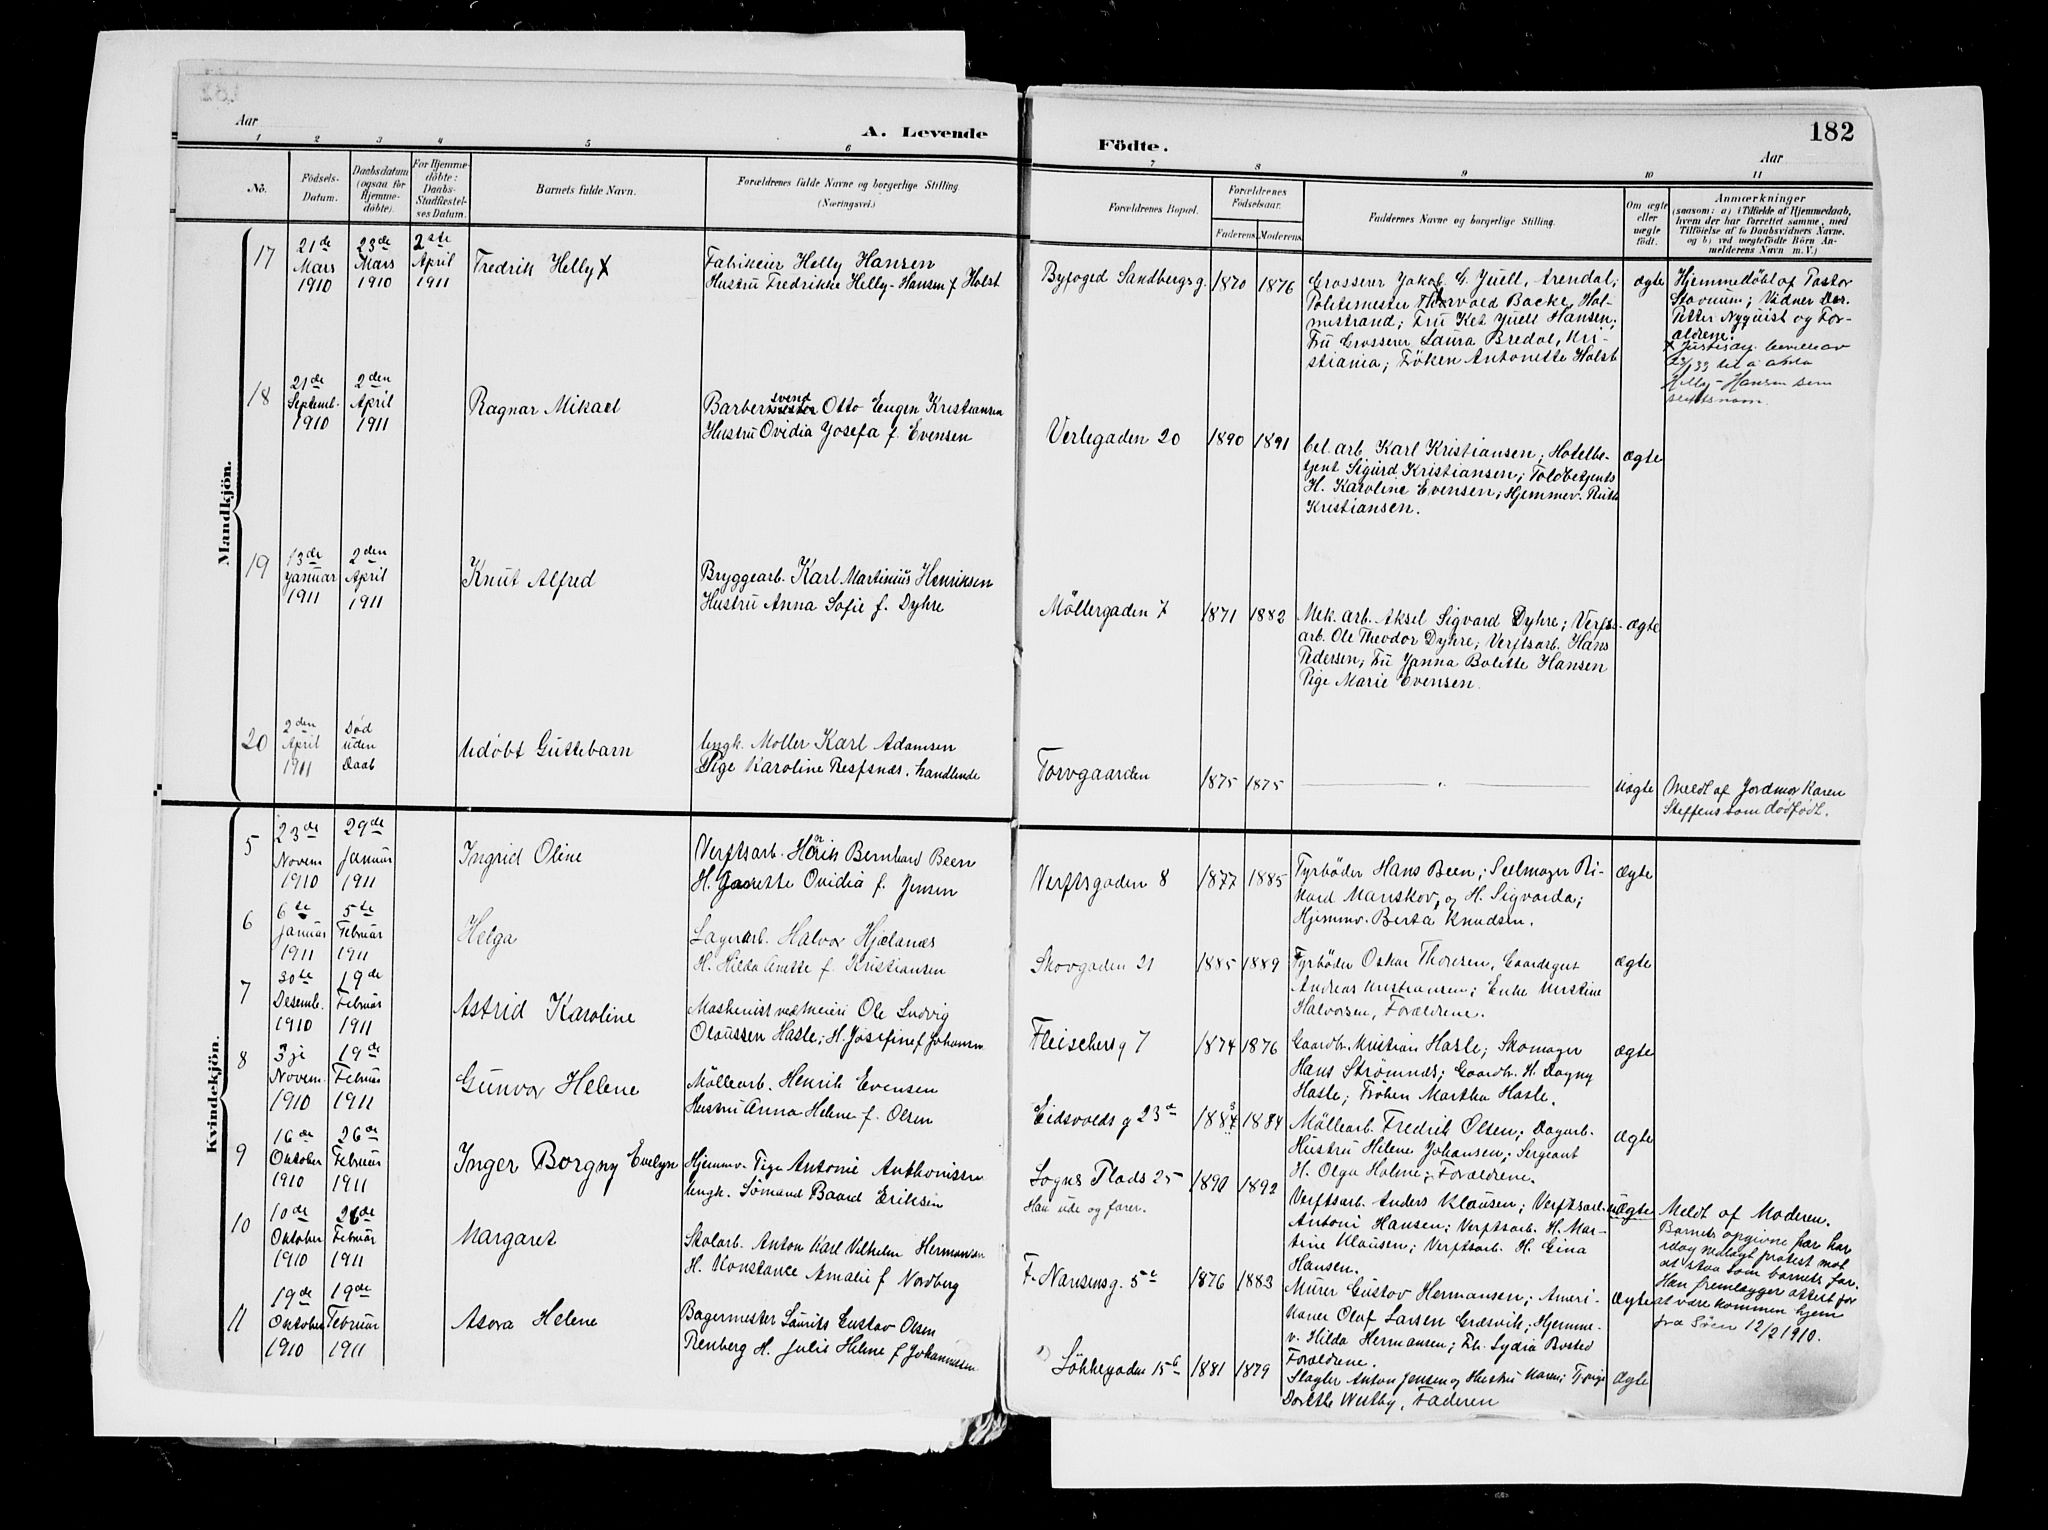 182
Aar
A. Levende
Födte.
Aar
1 2 3 4 5 6 7 8 9 10 11
No.
Födsels-
Datum.
Daabsdatum
(ogsaa for
Hjemme-
döbte).
For Hjemme-
döbte:
Daabs-
Stadfæstel-
ses Datum.
Barnets fulde Navn.
Forældrenes fulde Navne og borgerlige Stilling
(Næringsvei.)
Forældrenes Bopæl.
Forældrenes
Födselsaar.
Faderens. Moderens.
Faddernes Navne og borgerlige Stilling.
Om ægte
eller
uægte
födt.
Anmærkninger
(saasom: a) i Tilfælde af Hjemmedaab,
hvem der har forrettet samme, med
Tilföielse af to Daabsvidners Navne.
og b) ved uægtefödte Börn An-
melderens Navn m. V.)
Mandkjön.
17
21de
Mars
1910
23de
Mars
1910
2den
April
1911
Fredrik Helly X
Fabrikeier Helly Hansen
Hustru Fredrikke Helly-Hansen f. Holst
Byfoged Sandbergs g.
1870 1876
Grosserer Jakob C. Juell, Arendal;
Politimester Thorvald Backe, Hol-
mestrand; Fru Ket Juell Hansen;
Fru Grosserer Laura Bredal, Kri-
stiania; Frøken Antonette Holst
ægte
Hjemmedöbt af Pastor
Stavrum; Vidner Dr.
Petter Nyquist og For-
ældrene.
X Justisdep. bevilling av
/33 til å anta
Helly-Hansen som
slektsnavn.
18
21de
Septemb.
1910
2den
April
1911
Ragnar Mikael
svend
Barbermester Otto Eugen Kristiansen
Hustru Ovidia Josefa f. Evensen
Verlegaden 20
1890 1891
Cel. arb. Karl Kristiansen; Hotelbe-
tjent Sigurd Kristiansen; Toldbetjents
H. Karoline Evensen; Hjemmev. Ruth
Kristiansen.
ægte
19
13de
Januar
1911
2den
April
1911
Knut Alfred
Bryggearb. Karl Martinius Henriksen
Hustru Anna Sofie f. Dyhre
Möllergaden 7
1871 1882
Mek. arb. Aksel Sigvard Dyhre; Verfts-
arb. Ole Theodor Dyhre; Verftsarb. Hans
Pedersen; Fru Janna Bolette Hansen
Pige Marie Evensen.
ægte
20
2den
April
1911
Død
uden
Daab
Udøbt Guttebarn
Ungk. Møller Karl Adamsen
Pige Karoline Refsnæs, handlende
Torvgaarden
1875 1875
uægte
Meldt af Jordmor Karen
Steffens som dødfødt.
Kvindekjön.
5
23de
Novem
1910
29de
Januar
1911
Ingrid Oline
Verftsarb. Henrik Bernhard Been
H. Janette Ovidia f. Jensen
Verftsgaden 8
1877 1885
Fyrböder Hans Been; Seilmager Ri-
kard Manskov, og H. Sigvarda;
Hjemmv. Berta Knudsen.
ægte
6
6te
Januar
1911
5te
Februar
1911
Helga
Lagerarb. Halvor Hjælanæs
H. Hilda Anette f. Kristiansen
Skovgaden 21
1885 1889
Fyrböder Oskar Thoresen, Gaardsgut
Andreas Kristiansen; Enke Kirstine
Halvorsen, Forældrene.
ægte
7
30te
Desemb.
1910
19de
Februar
1911
Astrid Karoline
Maskinist ved Meieri Ole Ludvig
Olaussen Hasle; H. Josefine f. Johansen
Fleischers g 7
1874 1876
Gaardbr. Kristian Hasle; Skomager
Hans Strömnæs; Gaardbr. H. Dagny
Hasle; Fröken Martha Hasle.
ægte
8
3je
Novem.
1910
19de
Februar
1911
Gunvor Helene
Möllearb. Henrik Evensen
Hustru Anna Helene f. Olsen
Eidsvolds g 23d
1883 1884
Möllearb. Fredrik Olsen; Dagarb.
Hustru Helene Johansen; Sergeant
H. Olga Holme; Forældrene.
ægte
9
16de
Oktober
1910
26de
Februar
1911
Inger Borgny Evelyn
Hjemmv. Pige Antonie Anthonissen
Ungk. Sömand Baard Eriksen
Logns Plads 25
Han ude og farer.
1890 1892
Verftsarb. Anders Klausen; Verftsarb.
Antoni Hansen; Verftsarb. H. Mar-
tine Klausen; Verftsarb. H. Gina
Hansen.
uægte
Meldt af Moderen.
Barnets opgivne far har
idag nedlagt protest mot
at staa som barnets far.
Han fremlægger attest for
at være kommen hjem
fra Sjøen 12/2 1910.
10
10de
Oktober
1910
26de
Februar
1911
Margaret
Skolarb. Anton Karl Vilhelm Hermansen
H. Konstance Amalie f. Nordberg
F. Nansensg. 5c
1876 1883
Murer Gustov Hermansen; Ameri-
kaner Olaf Larsen Græsvik; Hjemme-
v. Hilda Hermansen; Fr. Lydia Busted
Forældrene.
ægte
11
19de
Oktober
1910
19de
Februar
1911
Asora Helene
Bagermester Laurits Gustav Olsen
Renberg H. Julie Helene f. Johannessen
Løkkegaden 15b
1881 1879
Slagter Anton Jensen og Hustru Karen; Frøken
Dorthe Westby, Faderen
ægte